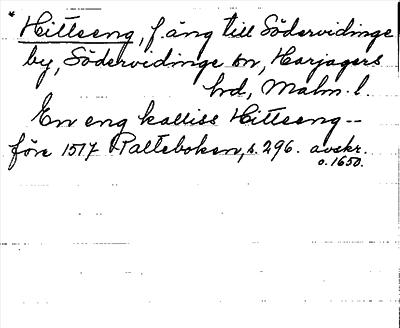 * Hittseng, f. äng till Södervidinge
by, Södervidinge sn, Harjagers
hd, Malm. l.
En eng kalliss Hittseng --
före 1517 Palteboken, s. 296. avskr.
o. 1650.